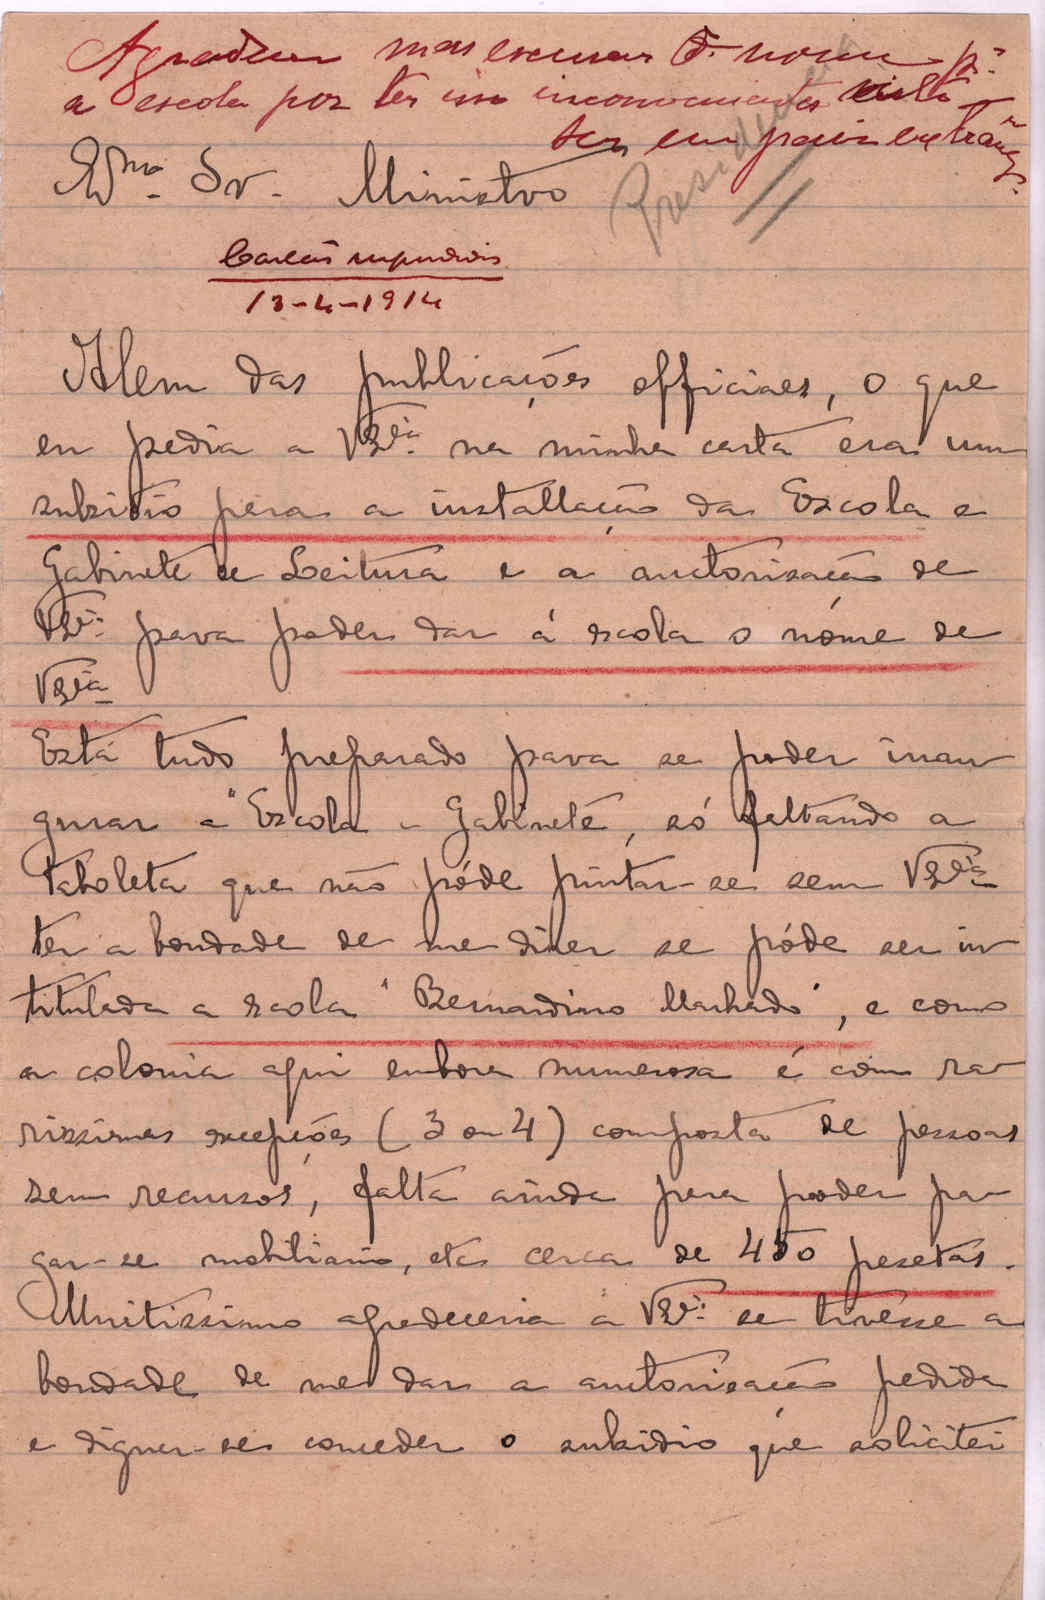 Agradecer mas escusar o nome p.ª
a escola por ter isso inconvenientes visto
ser em paiz extrang.º
Presidencia
Ex.mo Sr. Ministro
Cartão
13-4-1914
Alem das publicações officiaes, o que
eu pedia a V. Ex.cia na minha carta era um
subsidio para a installação da Escola e
Gabinete de Leitura e a auctorisação de
V. Ex.cia para poder dar á escola o nóme de
V. Ex.cia
Está tudo preparado para se poder inau
gurar a "Escola - Gabinete, só faltando a
taboleta que não póde pintar-se sem V. Ex.cia
ter a bondade de me dizer se póde ser in
titulada a escola "Bernardino Machado", e como
a colonia aqui embora numerosa é com ra-
rissimas excepções (3 ou 4) composta de pessoas
sem recursos, falta ainda para poder pa-
gar-se mobiliario, etc cerca de 450 pesetas.
Muitissimo agradeceria a V. Ex.cia se tivesse a
bondade de me dar a auctorisação pedida
e dignar-se conceder o subsidio que solicitei